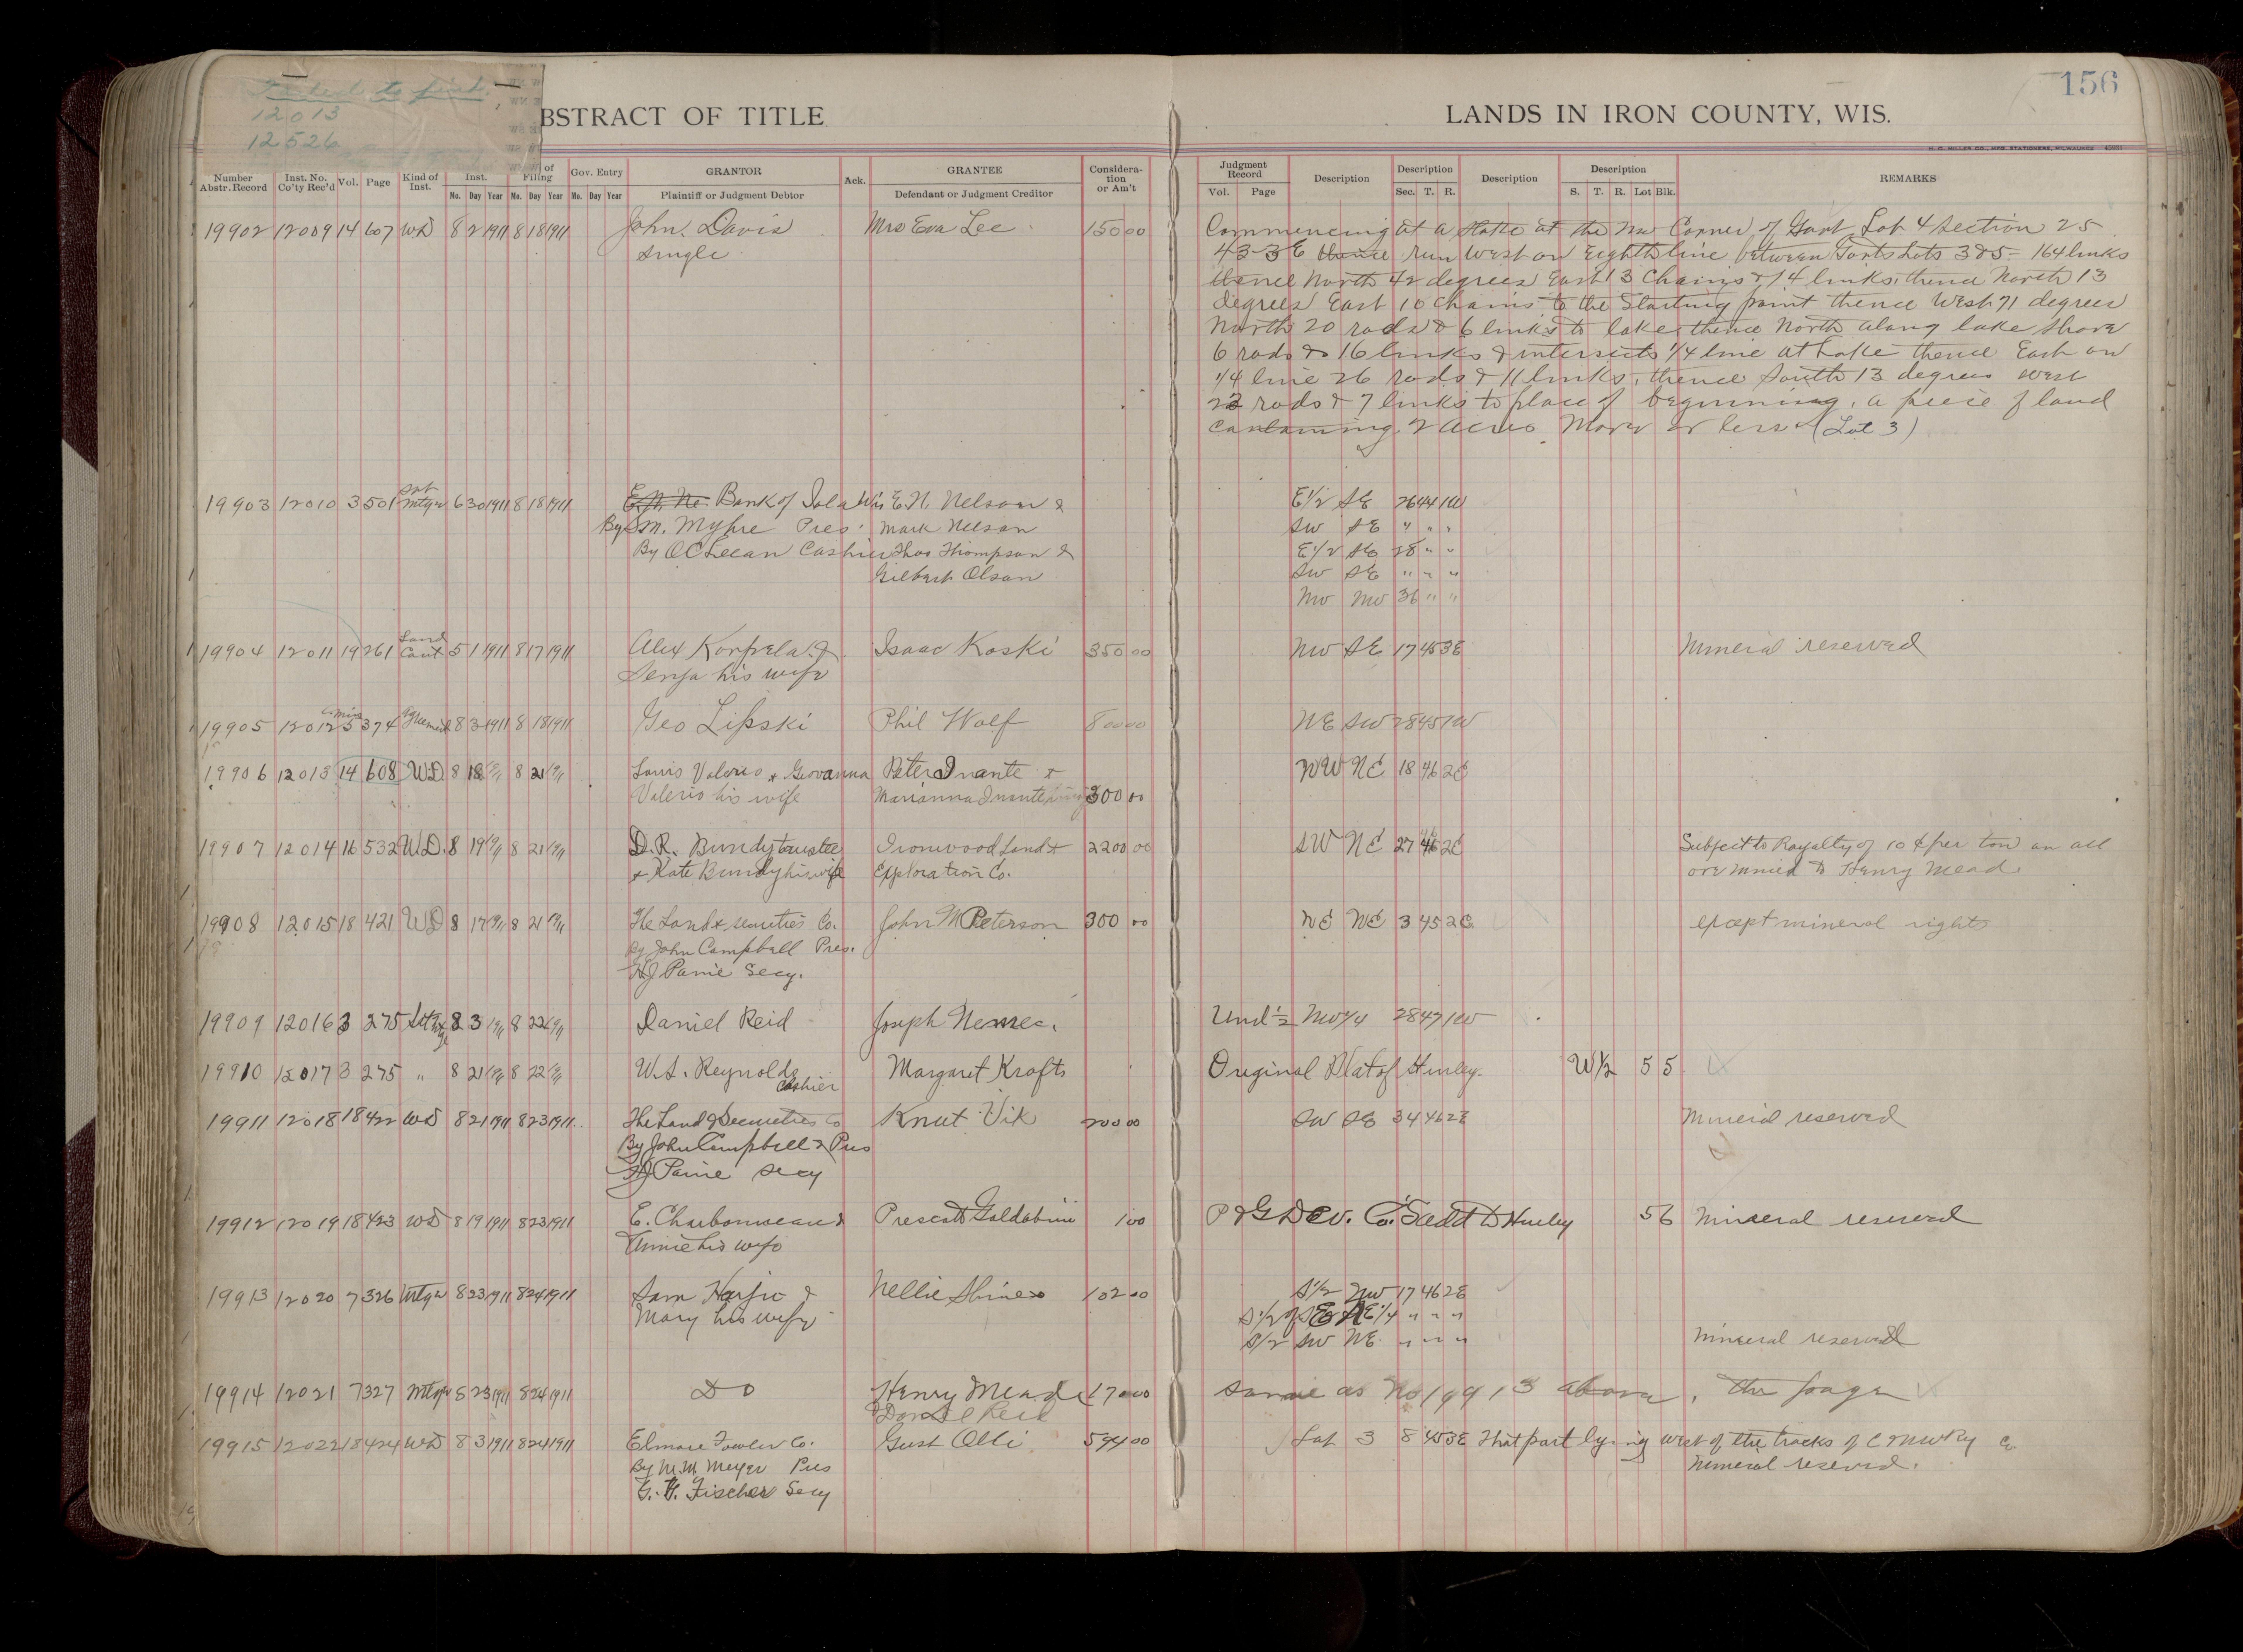 12013
12526
BSTRACT OF TITLE
LANDS IN IRON COUNTY, WIS.
156
H. C. MILLER CO., MFG. STATIONERS, MILWAUKEE
Number Abstr. Record
Inst. No. Co'ty Rec'd
Vol.
Page
Kind of Inst.
Inst.
of Filing
Gov. Entry
GRANTOR
Ack.
GRANTEE
Considera- tion or Am't
Judgment Record
Description
Description
Description
Description
REMARKS
Mo. Day Year Mo. Day Year Mo. Day Year
Plaintiff or Judgment Debtor
Defendant or Judgment Creditor
Vol. Page
Sec. T. R.
S. T. R. Lot Blk.
19902 12009 14 607 WD 8 2 1911 8 18 1911 John Davis Mrs Eva Lee 150 00 Commencing at a stake at the NW Corner of Govt Lot 4 Section 25
Single 43-3E thence run West on Eighth line between Govts Lots 3 & 5 - 164 links
thence North 42 degrees East 13 Chains & 14 links, thence North 13
degrees East 10 chains to the Starting point thence West 71 degrees
North 20 rods & 6 links to lake, thence North along lake shore
6 rods & 16 links & intersects 1/4 line at Lake thence East on
1/4 line 26 rods & 11 links, thence South 13 degrees West
23 rods & 7 links to place of beginning, a piece of land
containing 2 acres more or less (Lot 3)
19903 12010 3 501 Sat Mtge 6 30 1911 8 18 1911 Bank of Iola Wis E.N. Nelson & E1/2 SE 26 44 1W
By M. Myhre Pres. Mark Nelson SW SE " " "
By O C Leean Cashier Thos Thompson & E1/2 SE 28 " "
Gilbert Olson SW SE " " "
NW NW 36 " "
19904 12011 19 261 Land Cont 5 1 1911 8 17 1911 Alex Korpela & Isaac Koski 350 00 NW SE 17 45 3E Mineral reserved
Senja his wife
19905 12012 5 374 Agreement 8 3 1911 8 18 1911 Geo Lipski Phil Wolf 80000 NE SW 28 45 1W
19906 12013 14 608 WD 8 18 1911 8 21 1911 Louis Valerio & Geovanna Peter Inante & NW NE 18 46 2E
Valerio his wife Marianna Inante 300 00
19907 12014 16 532 W.D. 8 19 1911 8 21 1911 D.R. Bundy trustee Ironwood Land & 2200 00 SW NE 27 46 2E Subject to Royalty of 10 ¢ per ton on all
& Kate Bundy his wife Exploration Co. ore mined to Henry Mead
19908 12015 18 421 WD 8 17 1911 8 21 1911 The Land & securities Co. John M Peterson 300 00 NE NE 3 45 2E except mineral rights
By John Campbell Pres.
HJ Paine Secy.
19909 12016 3 275 8 3 1911 8 22 1911 Daniel Reid Joseph Nemec. Und 1/2 NW 1/4 28 47 1W
19910 12017 3 275 " 8 21 1911 8 22 1911 W.S. Reynolds Margaret Krafts Original Plat of Hurley. W1/2 5 5
Cashier
19911 12018 18 422 WD 8 21 1911 8 23 1911 The Land & Securities Co Knut Vik 200 00 SW SE 34 46 2E Mineral reserved
By John Campbell Pres
HJ Paine Secy
19912 12019 18 423 WD 8 19 1911 8 23 1911 E. Charbonneau & 1 00 P & G Dev. Co. Hurley 5 6 Mineral reserved
his wife
19913 12020 7 326 Mtge 8 23 1911 8 24 1911 Sam Harju & Nellie Shines 102 00 S1/2 NW 17 46 2E
Mary his wife S1/2 of SE NE1/4 " " "
S1/2 SW NE " " " Mineral reserved
19914 12021 7 327 Mtge 8 23 1911 8 24 1911 DO Henry Meade 170 00 Same as No 19913 above, this page
& Daniel Reid
19915 12022 18 424 WD 8 3 1911 8 24 1911 Elmore Fowler Co. Gust Olli 594 00 Lot 3 8 45 3E That part lying west of the tracks of C & NW Ry Co
By M.M. Meyer Pres Mineral reserved.
G. F. Fischer Secy